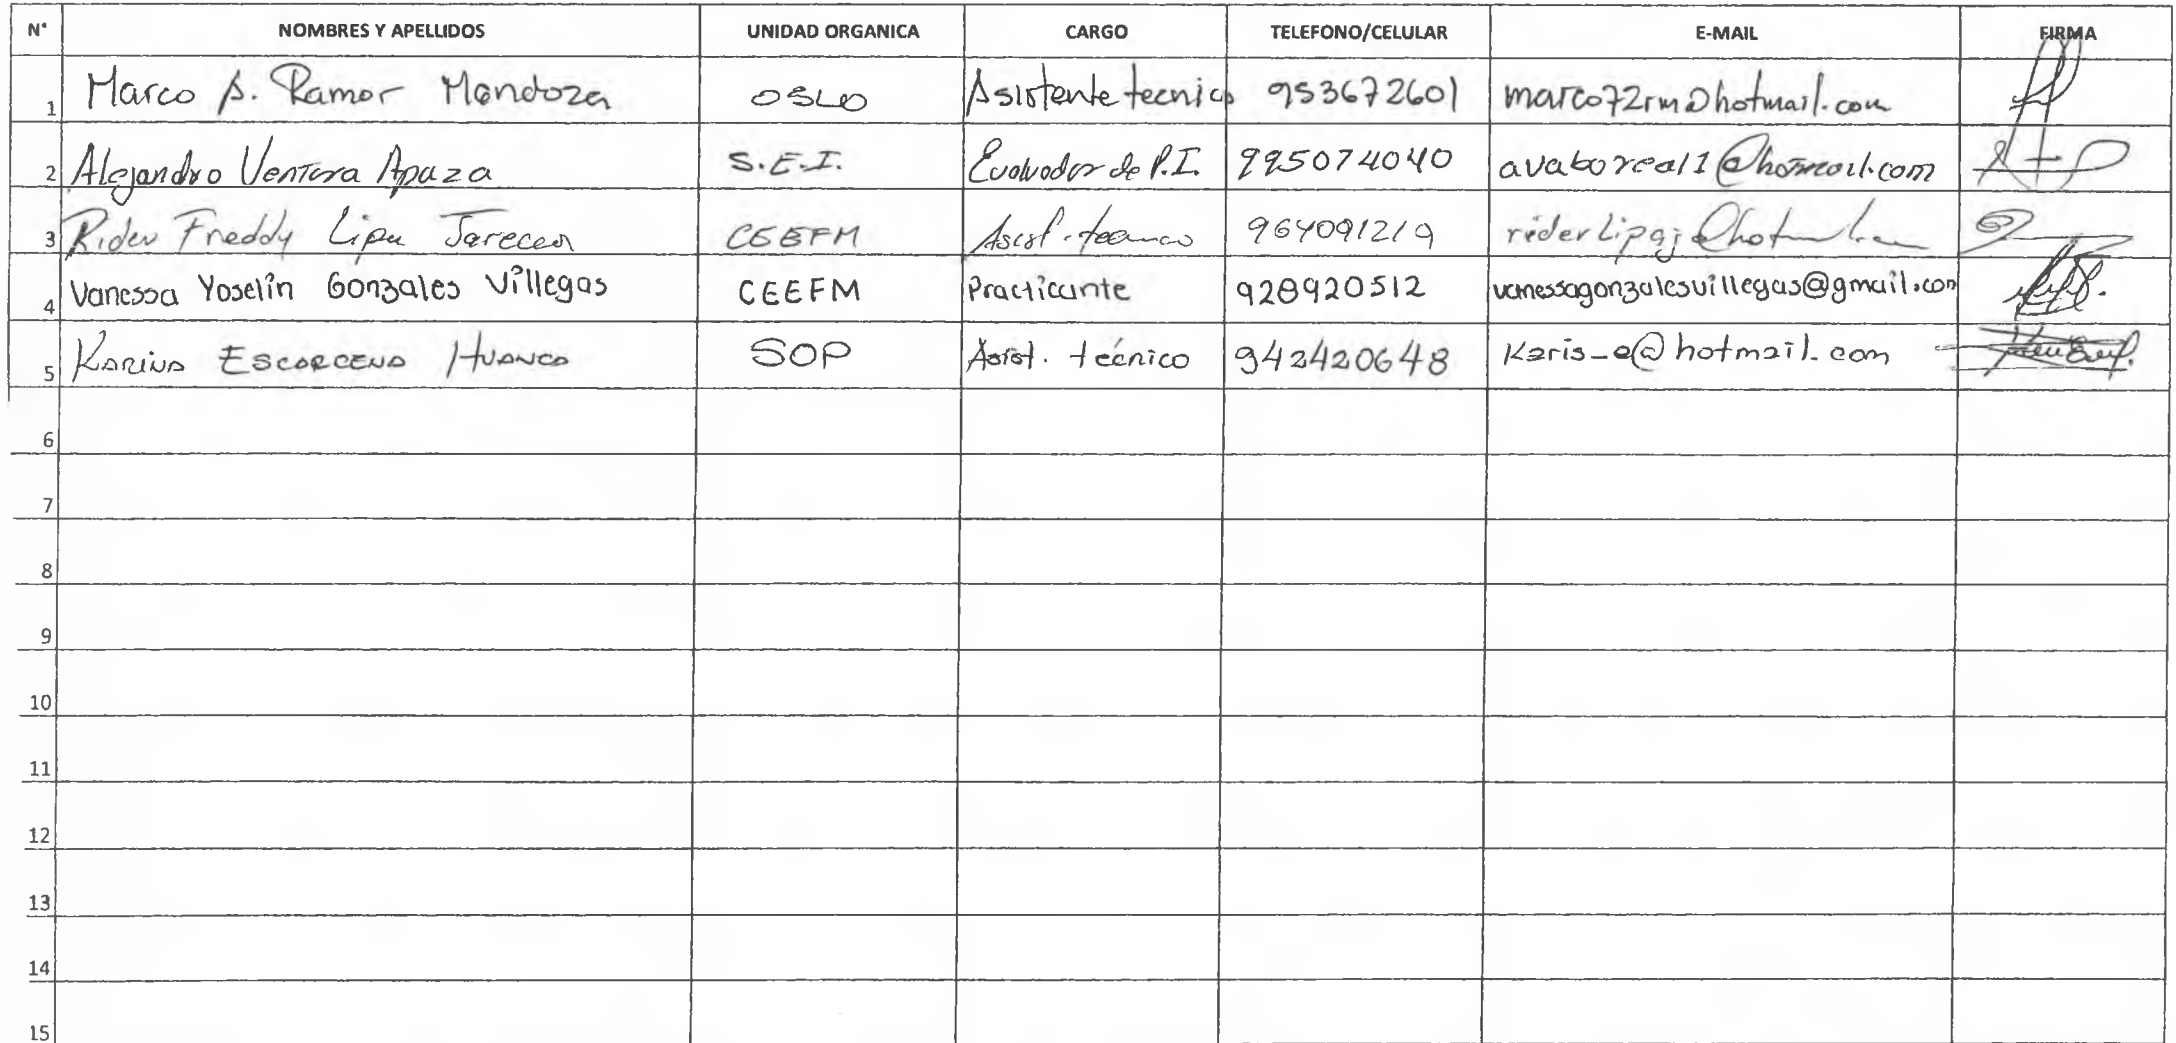 N° NOMBRES Y APELLIDOS UNIDAD ORGANICA CARGO TELEFONO/CELULAR E-MAIL FIRMA
1 Marco A. Ramos Mendoza OSLO Asistente tecnico 953672601 marco72rm@hotmail.com
2 Alejandro Ventura Apaza S.E.I. Evaluador de P.I. 995074040 avaboreal1@hotmail.com
3 Rider Freddy Lipa CEEFM Asist. tecnico 964091219
4 Vanessa Yoselin Gonzales Villegas CEEFM Practicante 928920512 vanessagonzalesvillegas@gmail.com
5 Karina Escarcena Huanca SOP Asist. técnico 942420648 Karis_e@hotmail.com
6
7
8
9
10
11
12
13
14
15